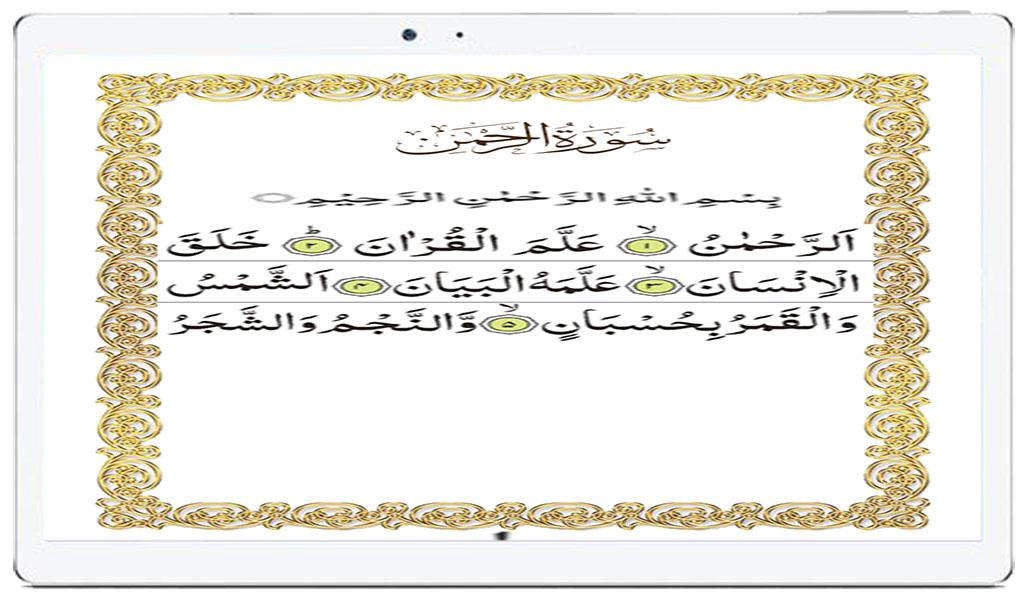 سُوْرَةُ الرَّحْمٰن
بِسْمِ اللهِ الرَّحْمٰنِ الرَّحِيْمِ
اَلرَّحْمٰنُ ۙ﴿۱﴾ عَلَّمَ الْقُرْاٰنَ ؕ﴿۲﴾ خَلَقَ
الْاِنْسَانَ ۙ﴿۳﴾ عَلَّمَهُ الْبَيَانَ ﴿۴﴾ اَلشَّمْسُ
وَالْقَمَرُ بِحُسْبَانٍ ۙ﴿۵﴾ وَّالنَّجْمُ وَالشَّجَرُ